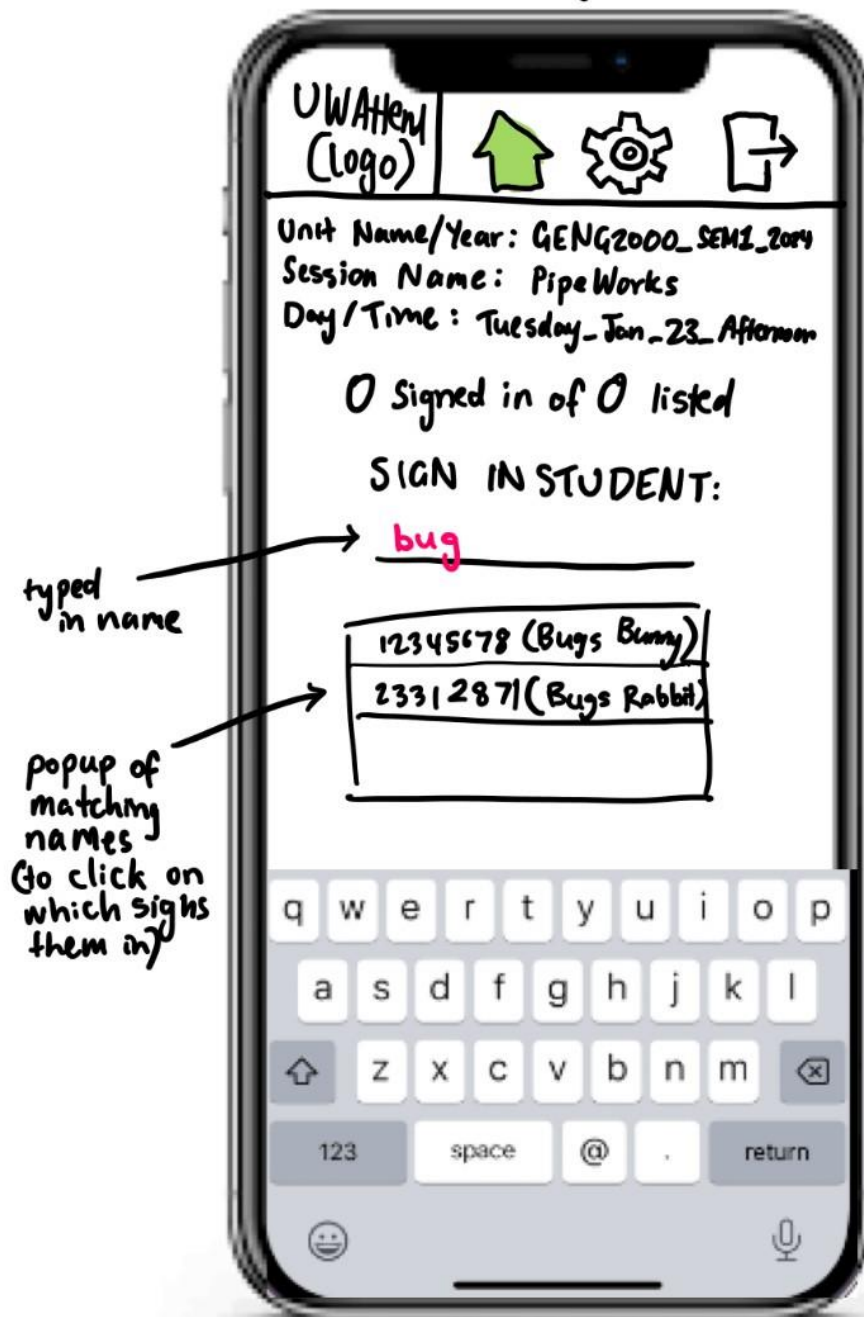 UWAttend
(logo)
Unit Name/Year: GENG2000_SEM1_2024
Session Name: PipeWorks
Day/Time: Tuesday_Jan_23_Afternoon
0 Signed in of 0 listed
SIGN IN STUDENT:
bug
typed
in name
12345678 (Bugs Bunny)
23312871 (Bugs Rabbit)
popup of
matching
names
(to click on
which signs
them in)
q w e r t y u i o p
a s d f g h j k l
z x c v b n m
123 space @ . return